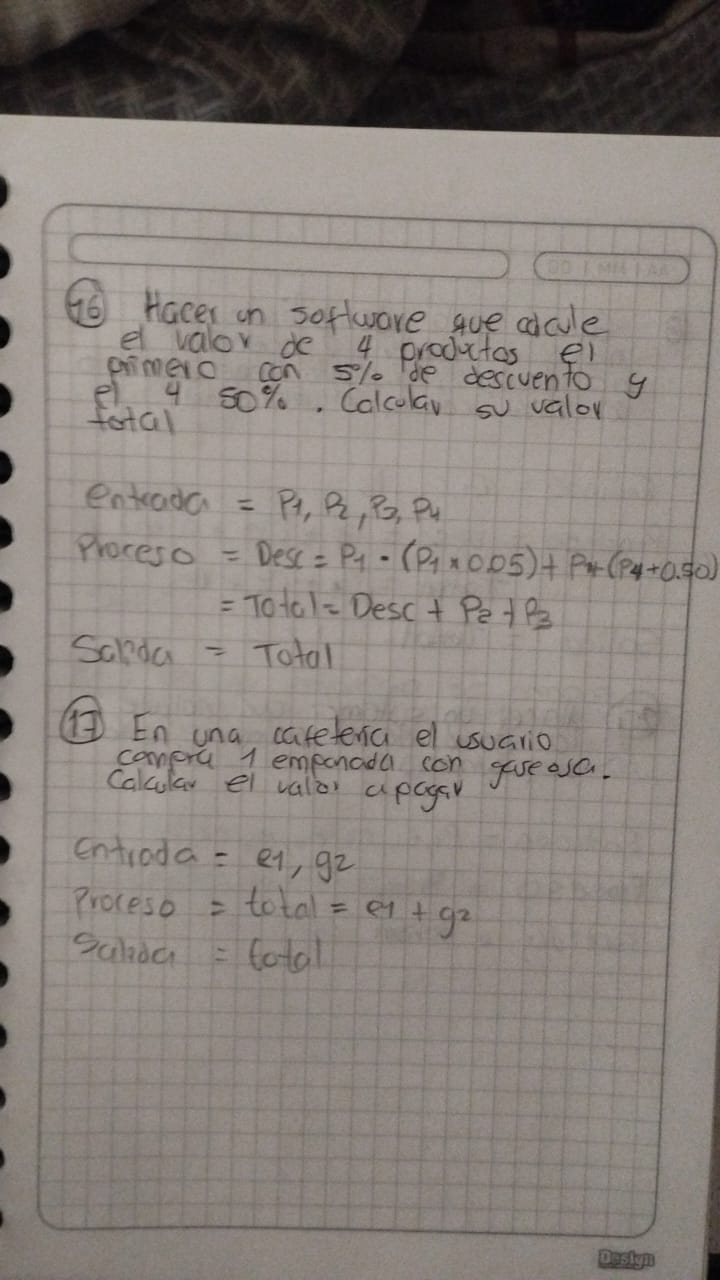 DD | MM | AA
16 Hacer un software que calcule
el valor de 4 productos el
primero con 5% de descuento y
el 4 50%. Calcular su valor
total
entrada = P1, P2, P3, P4
Proceso = Desc = P1 - (P1 x 0.05) + P4-(P4+0.50)
= Total = Desc + P2 + P3
Salida = Total
17 En una cafeteria el usuario
compra 1 empanada con gaseosa.
Calcular el valor a pagar
Entrada = e1, g2
Proceso = total = e1 + g2
Salida = total
Design